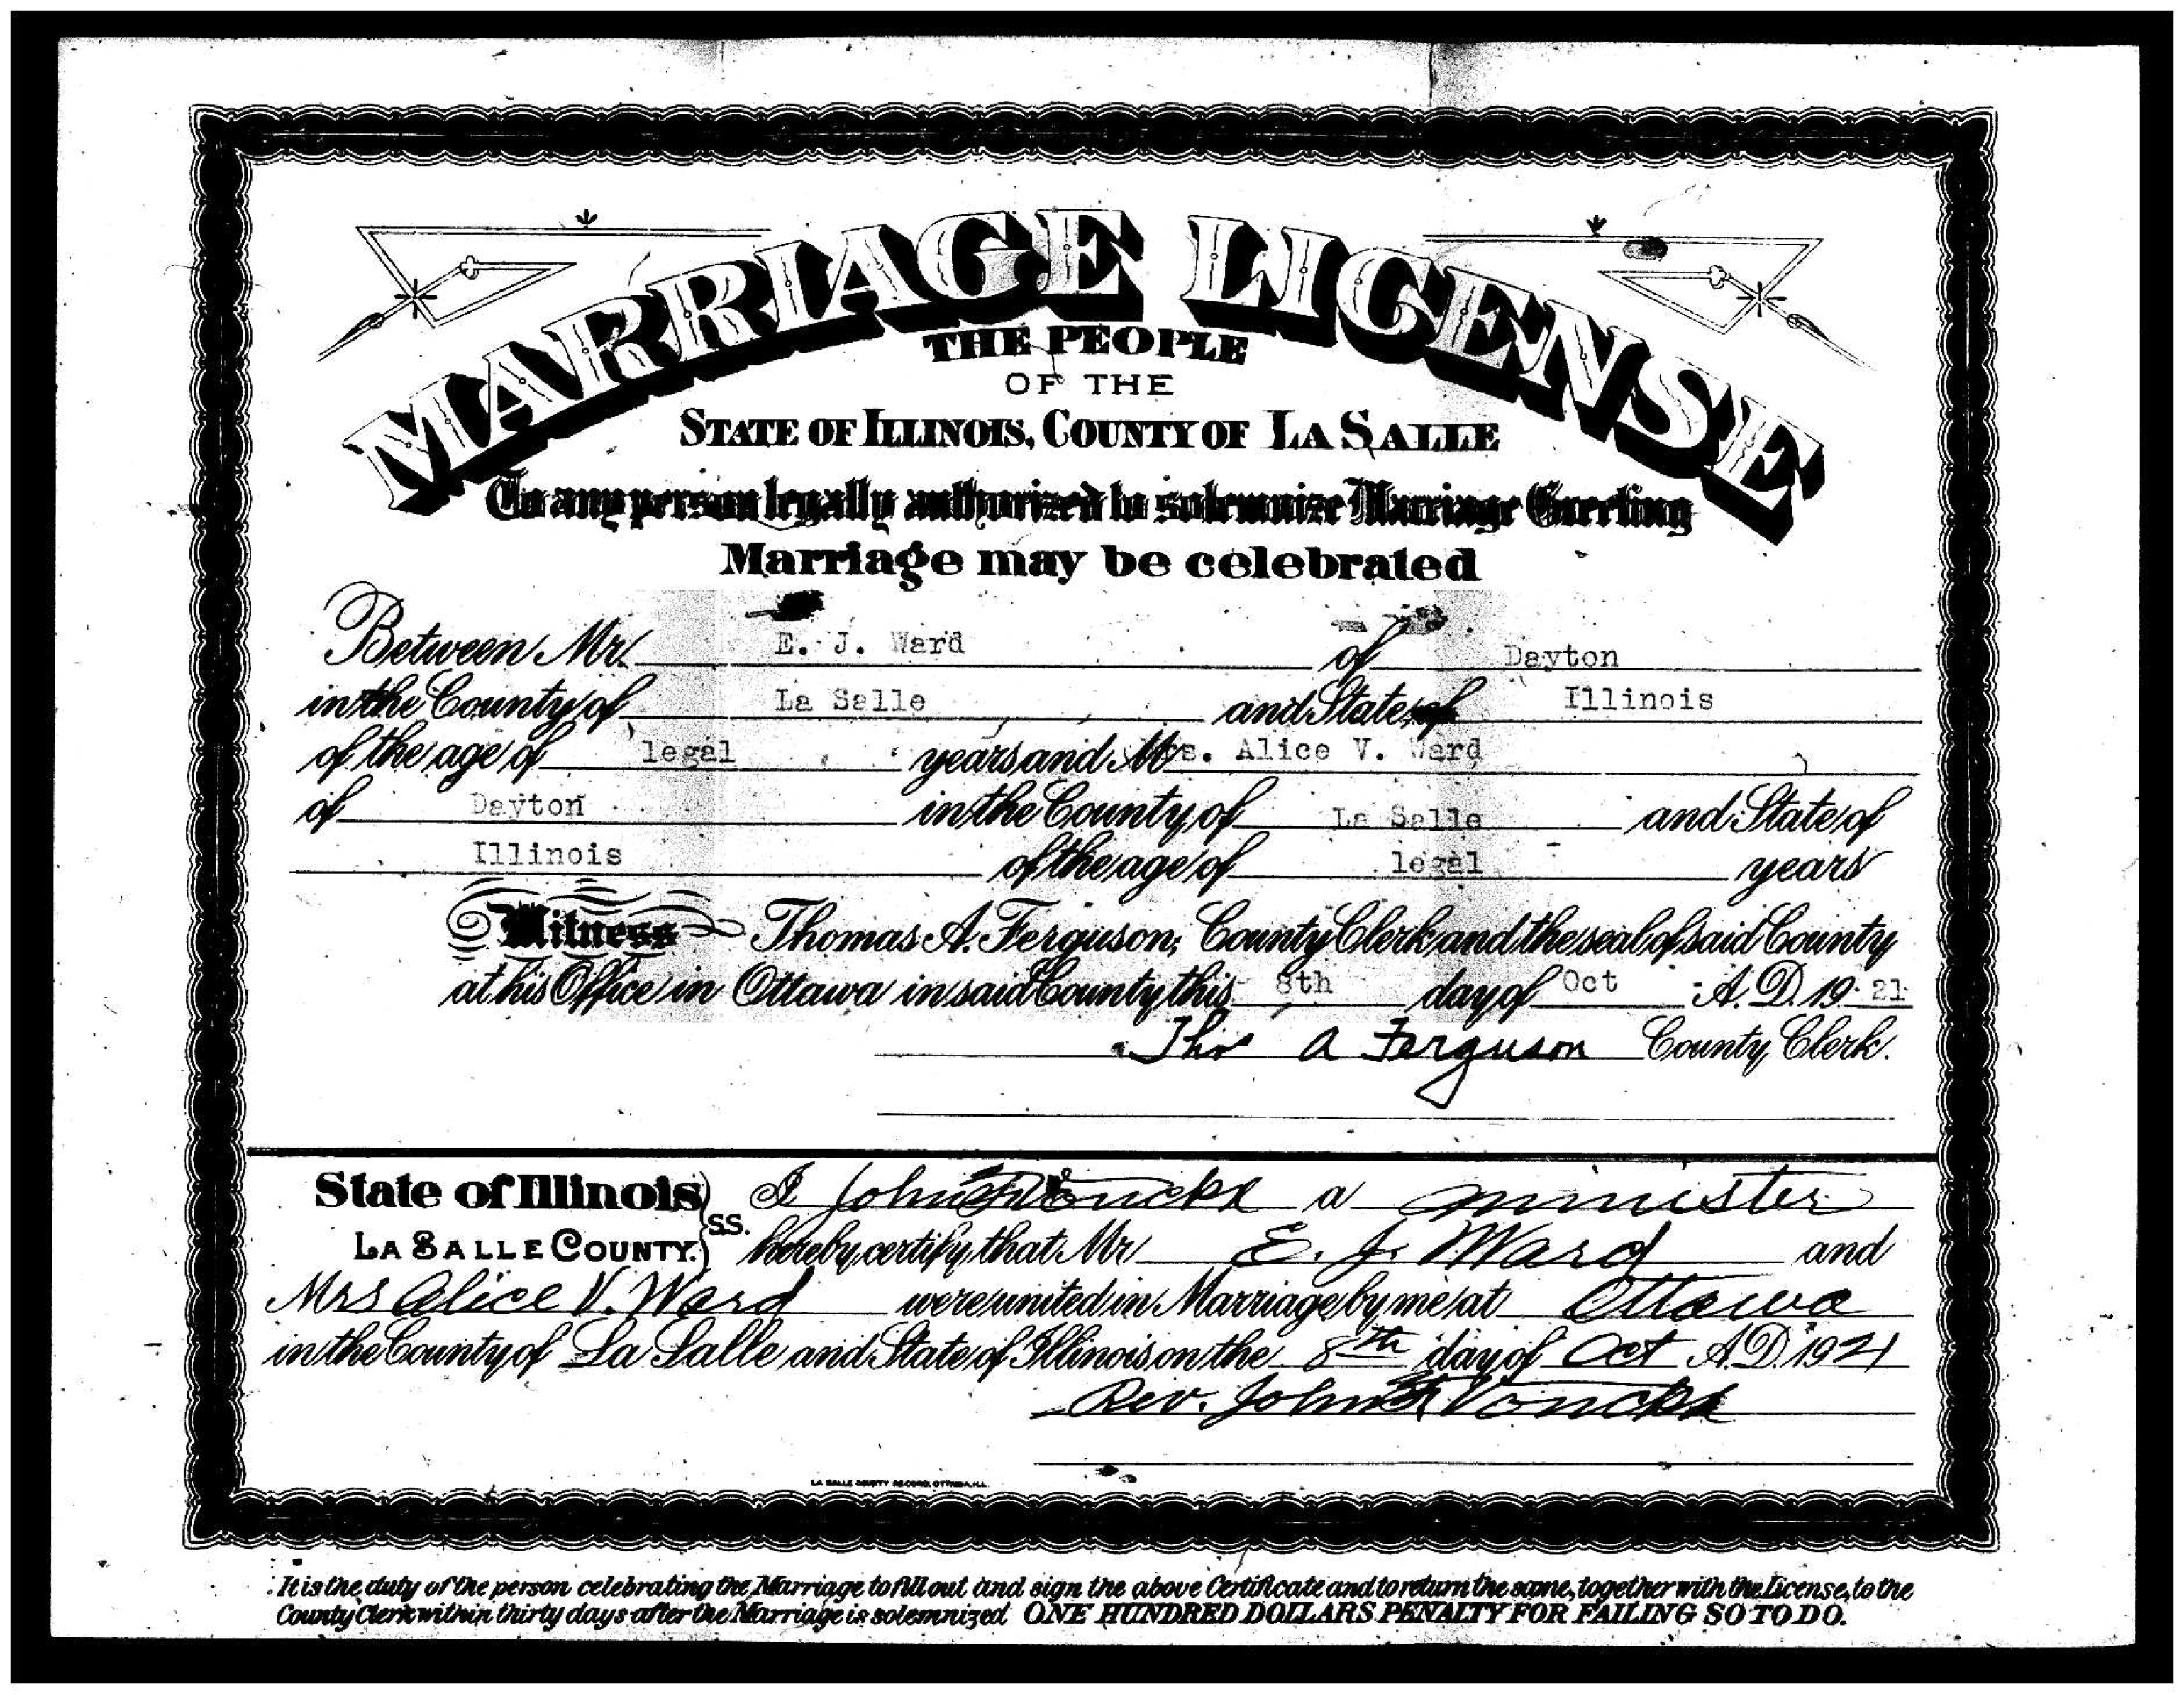 MARRIAGE LICENSE
THE PEOPLE
OF THE
STATE OF ILLINOIS, COUNTY OF LA SALLE
To any person legally authorized to solemnize Marriage Greeting
Marriage may be celebrated
Between Mr. E. J. Ward of Dayton
in the County of La Salle and State of Illinois
of the age of legal years and Mrs. Alice V. Ward
of Dayton in the County of La Salle and State of
Illinois of the age of legal years
Witness Thomas A. Ferguson, County Clerk and the seal of said County
at his Office in Ottawa in said County this 8th day of Oct A.D. 19 21
Thos A Ferguson County Clerk.
State of Illinois } SS. I John Vonckx a minister
LA SALLE COUNTY. hereby certify that Mr E. J. Ward and
Mrs Alice V. Ward were united in Marriage by me at Ottawa
in the County of La Salle and State of Illinois on the 8th day of Oct A.D. 1921
Rev. John Vonckx
LA SALLE COUNTY RECORD, OTTAWA, ILL.
It is the duty of the person celebrating the Marriage to fill out and sign the above Certificate and to return the same, together with the License, to the
County Clerk within thirty days after the Marriage is solemnized ONE HUNDRED DOLLARS PENALTY FOR FAILING SO TO DO.